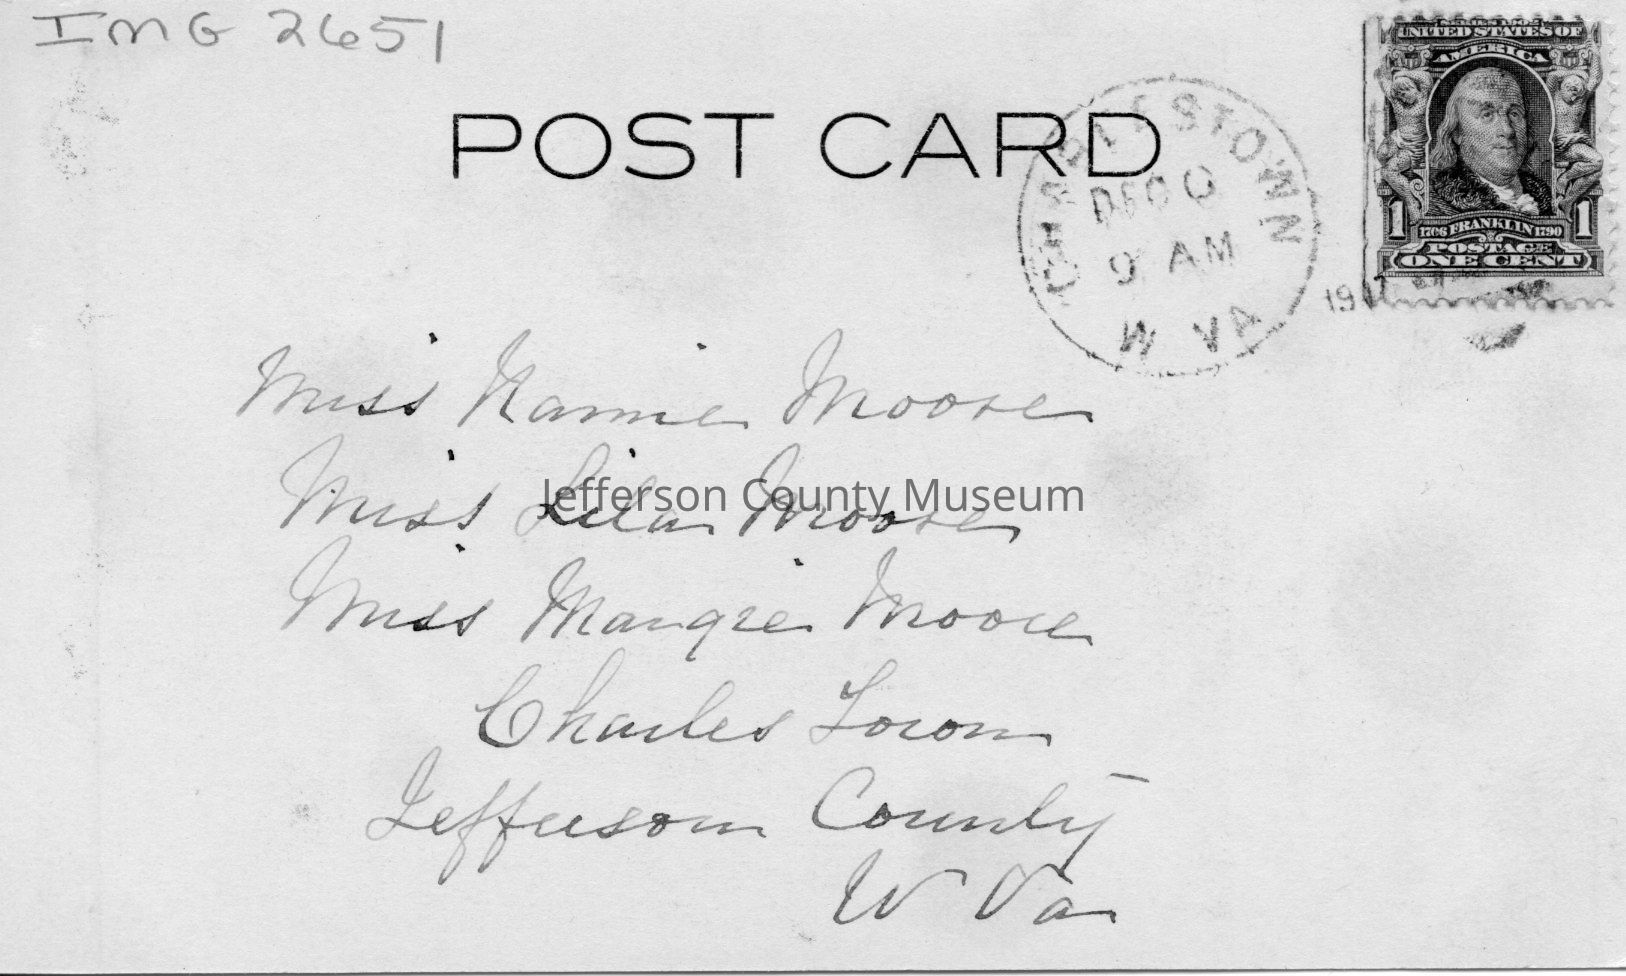 IMG 2651
POST CARD
CHARLESTOWN
DEC
9 AM
W VA
UNITED STATES OF
AMERICA
1 1
1706 FRANKLIN 1790
POSTAGE
ONE CENT
Miss Nannie Moore
Miss Lila Moore
Jefferson County Museum
Miss Margie Moore
Charles Town
Jefferson County
W Va